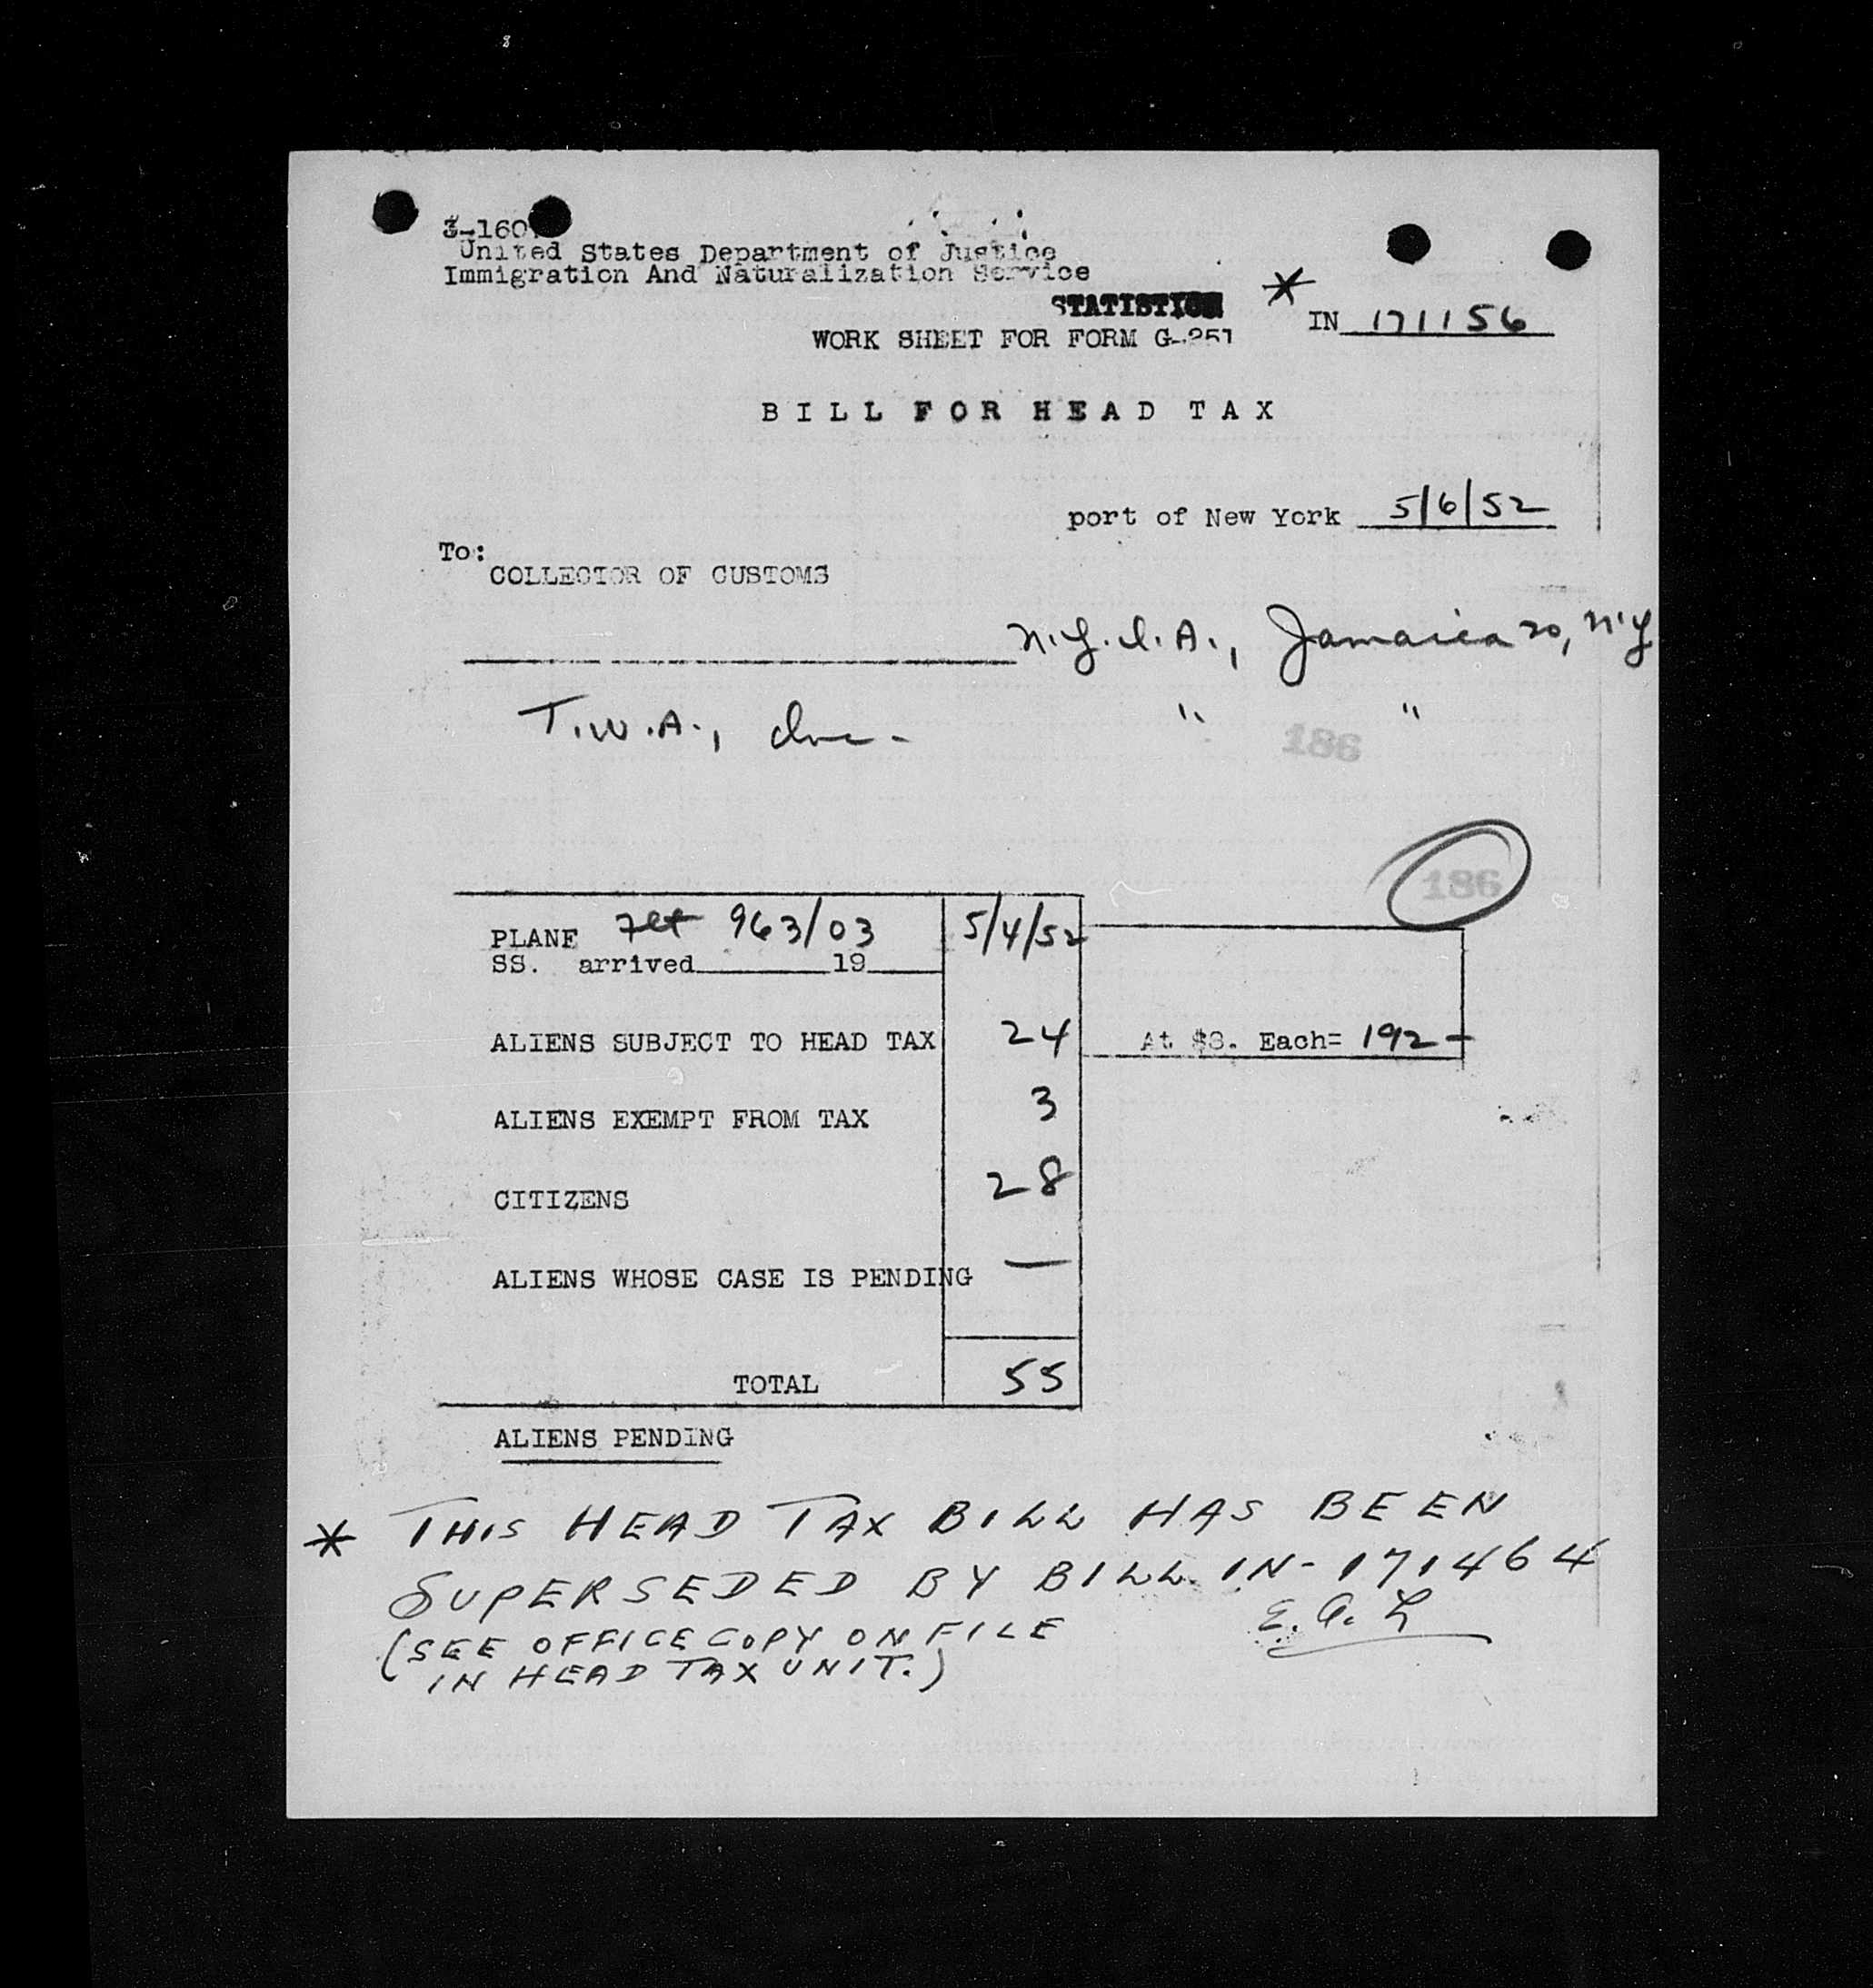 3-160
United States Department of Justice
Immigration And Naturalization Service
STATISTICS
* IN 171156
WORK SHEET FOR FORM G-251
BILL FOR HEAD TAX
port of New York 5/6/52
To:
COLLECTOR OF CUSTOMS
N.Y.I.A., Jamaica 20, N.Y
T.W.A., Inc. " "
186
186
PLANE Flt 963/03 5/4/52
SS. arrived 19
ALIENS SUBJECT TO HEAD TAX 24 At $8. Each= 192-
ALIENS EXEMPT FROM TAX 3
CITIZENS 28
ALIENS WHOSE CASE IS PENDING —
TOTAL 55
ALIENS PENDING
* THIS HEAD TAX BILL HAS BEEN
SUPERSEDED BY BILL IN-171464
(SEE OFFICE COPY ON FILE E.A.L
IN HEAD TAX UNIT.)